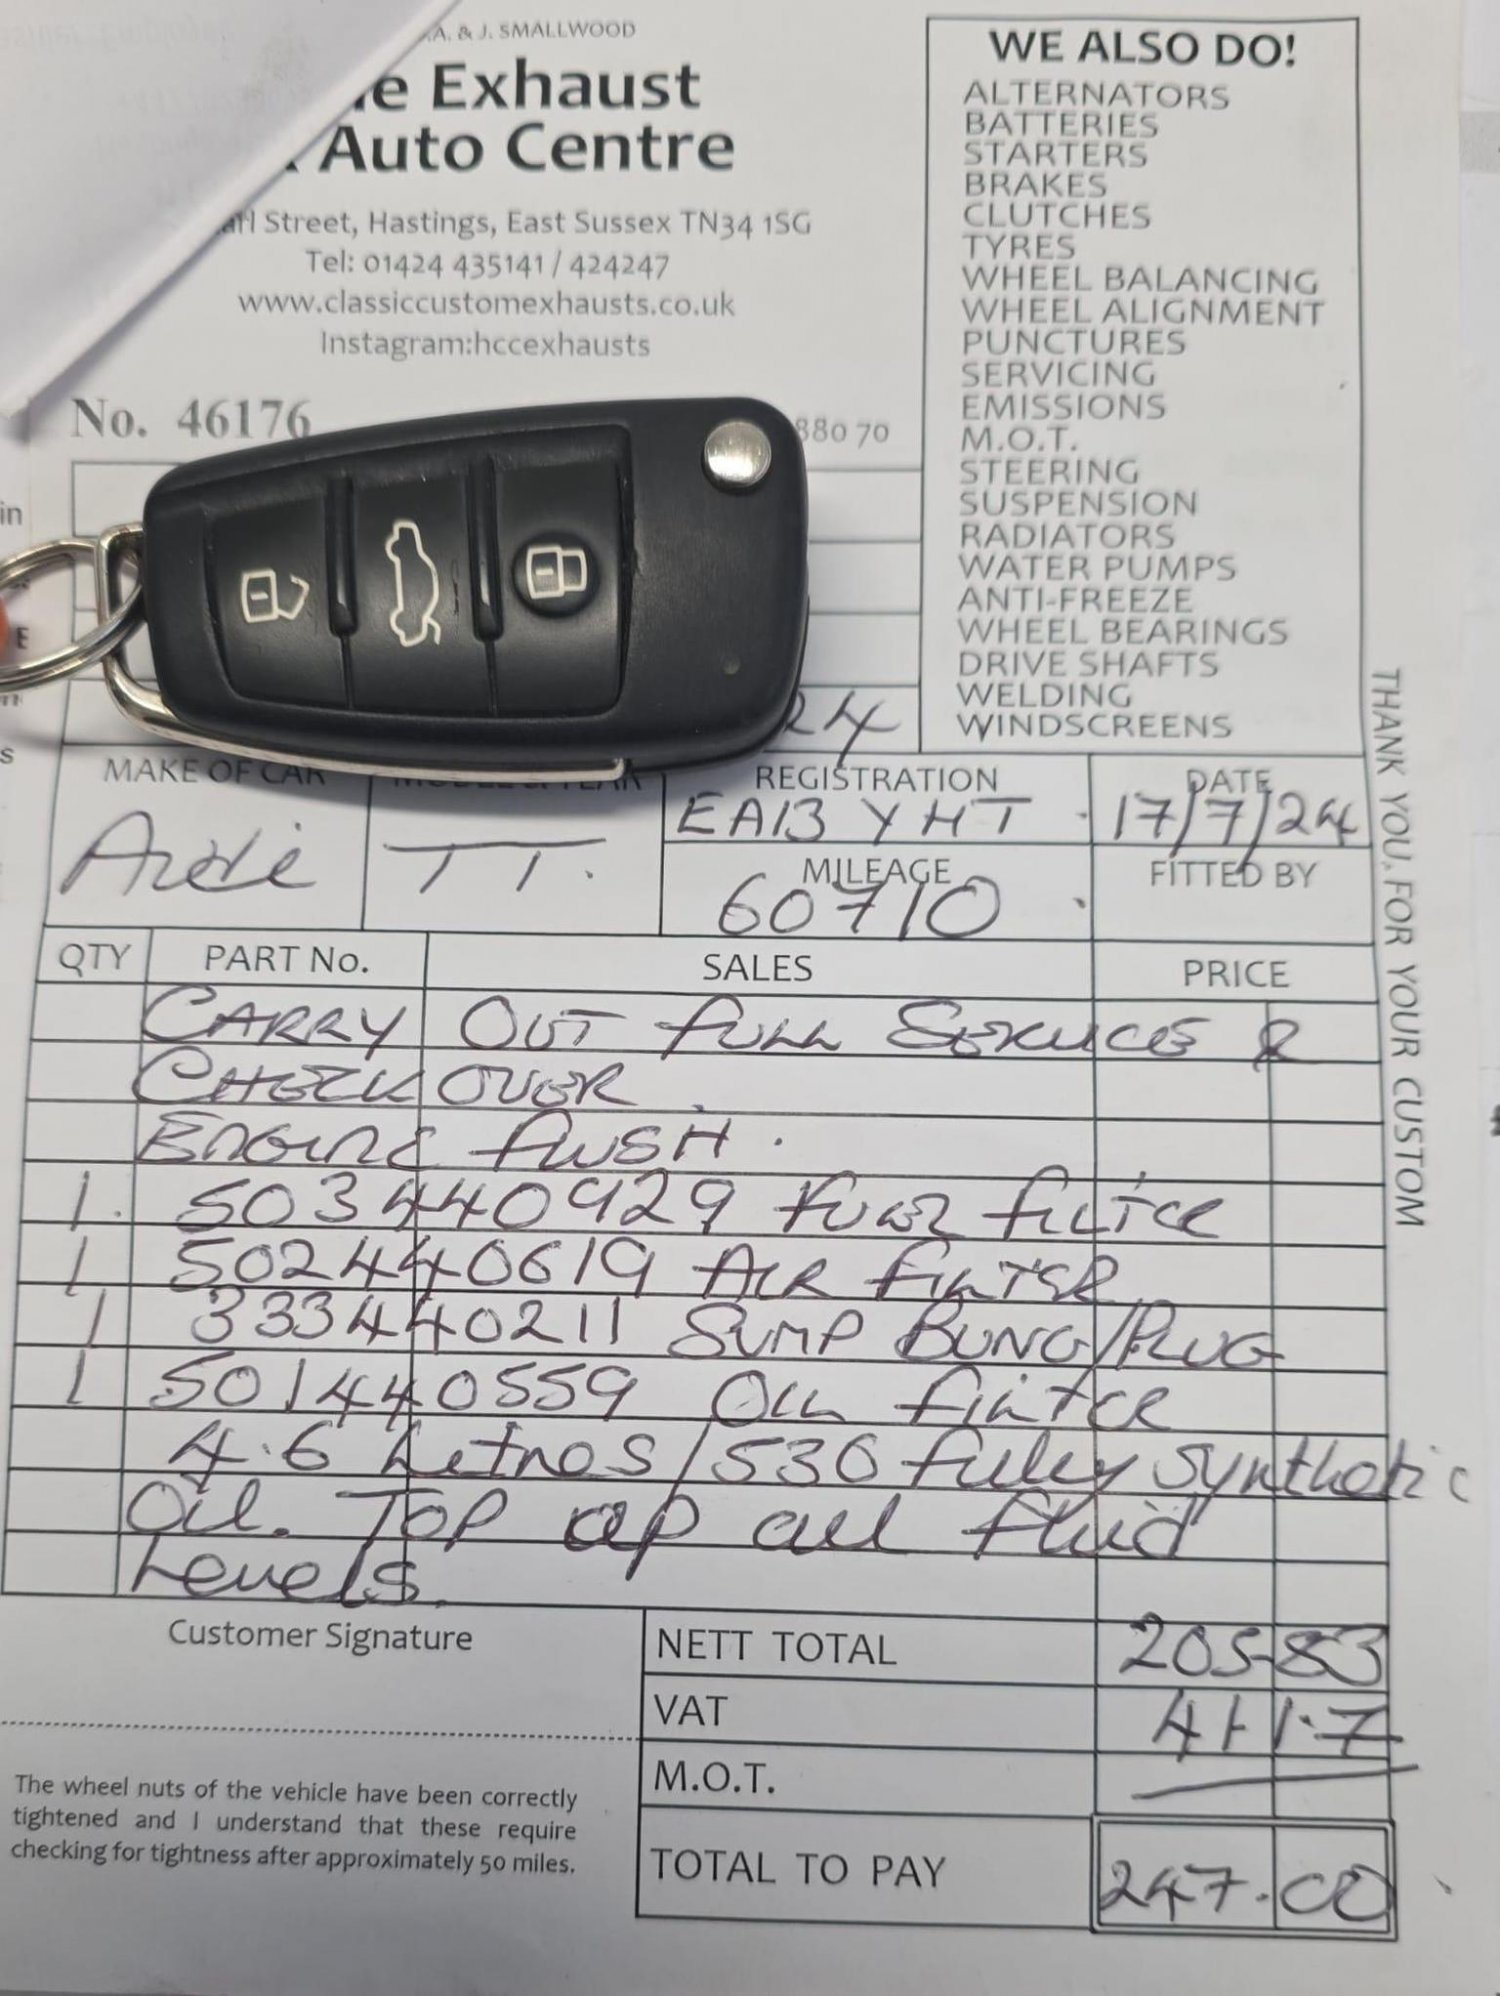 A. & J. SMALLWOOD
Exhaust
Auto Centre
Street, Hastings, East Sussex TN34 1SG
Tel: 01424 435141 / 424247
www.classiccustomexhausts.co.uk
Instagram:hccexhausts
No. 46176
880 70
WE ALSO DO!
ALTERNATORS
BATTERIES
STARTERS
BRAKES
CLUTCHES
TYRES
WHEEL BALANCING
WHEEL ALIGNMENT
PUNCTURES
SERVICING
EMISSIONS
M.O.T.
STEERING
SUSPENSION
RADIATORS
WATER PUMPS
ANTI-FREEZE
WHEEL BEARINGS
DRIVE SHAFTS
WELDING
WINDSCREENS
THANK YOU FOR YOUR CUSTOM
24
MAKE OF CAR
REGISTRATION
DATE
Audi
TT.
EA13 YHT
17/7/24
MILEAGE
FITTED BY
60710
QTY PART No. SALES PRICE
CARRY OUT FULL SERVICE &
CHECK OVER.
ENGINE FLUSH.
1. 503440929 FUEL FILTER
1 502440619 AIR FILTER
1 333440211 SUMP BUNG/PLUG
1 501440559 OIL FILTER
4.6 Litres / 530 fully synthetic
Oil. TOP up all fluid
Levels.
Customer Signature
NETT TOTAL 205-83
VAT 41-1.7
M.O.T.
TOTAL TO PAY 247.00
The wheel nuts of the vehicle have been correctly
tightened and I understand that these require
checking for tightness after approximately 50 miles.